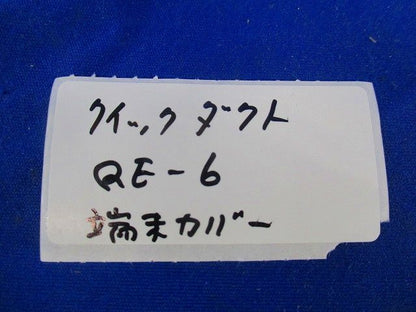 クイック ダクト
QE-6
端末カバー